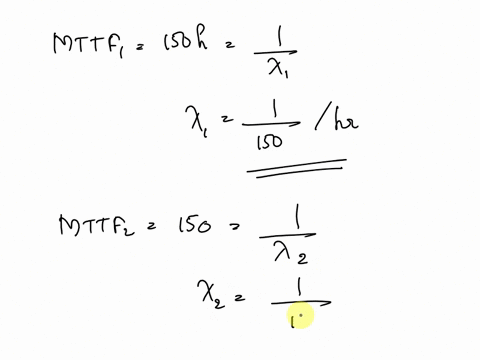 MTTF₁ = 150h = 1/λ₁
λ₁ = 1/150 /hr
MTTF₂ = 150 = 1/λ₂
λ₂ = 1/1